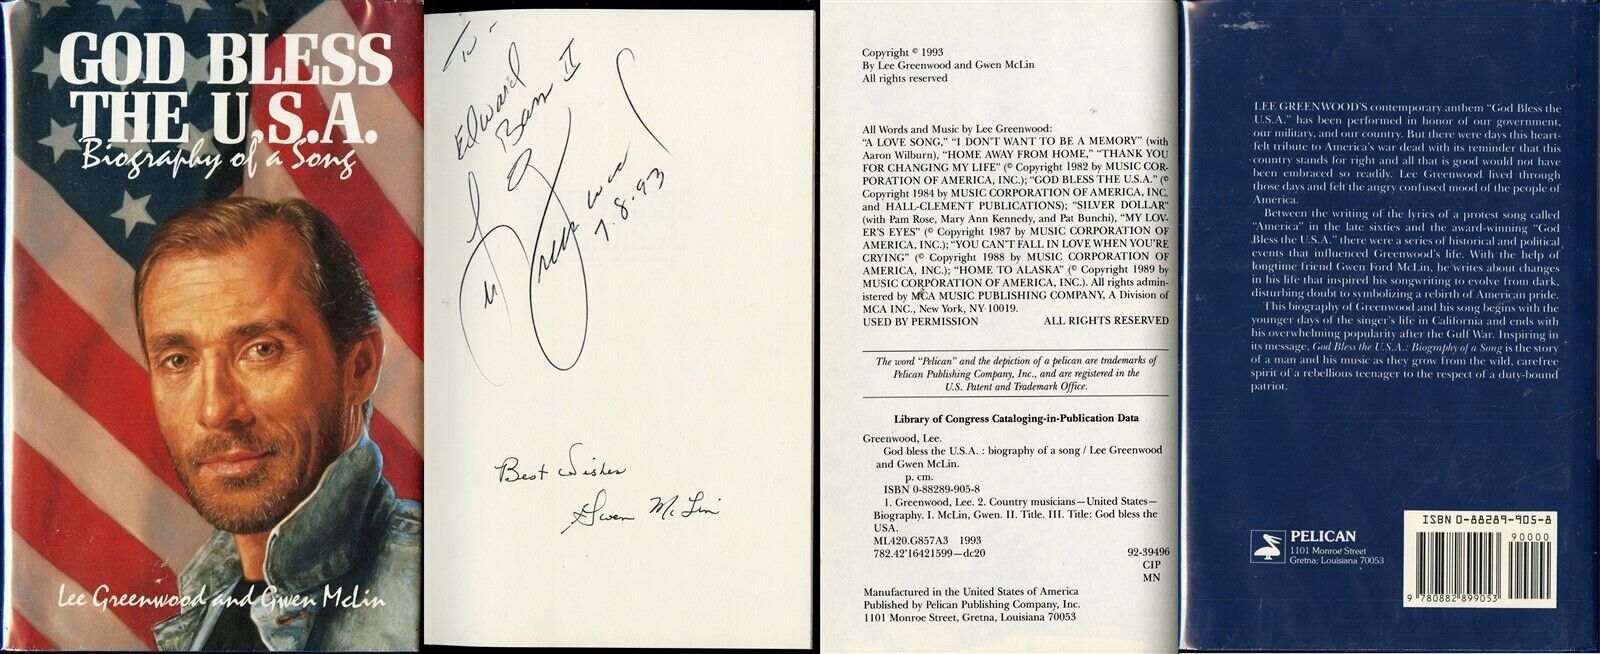 GOD BLESS
THE U.S.A.
Biography of a Song
Lee Greenwood and Gwen McLin
To -
Edward
Bass II
Lee Greenwood
7.8.93
Best Wishes
Gwen McLin
Copyright © 1993
By Lee Greenwood and Gwen McLin
All rights reserved
All Words and Music by Lee Greenwood:
"A LOVE SONG," "I DON'T WANT TO BE A MEMORY" (with
Aaron Wilburn), "HOME AWAY FROM HOME," "THANK YOU
FOR CHANGING MY LIFE" (© Copyright 1982 by MUSIC COR-
PORATION OF AMERICA, INC.); "GOD BLESS THE U.S.A." (©
Copyright 1984 by MUSIC CORPORATION OF AMERICA, INC.
and HALL-CLEMENT PUBLICATIONS); "SILVER DOLLAR"
(with Pam Rose, Mary Ann Kennedy, and Pat Bunchi), "MY LOV-
ER'S EYES" (© Copyright 1987 by MUSIC CORPORATION OF
AMERICA, INC.); "YOU CAN'T FALL IN LOVE WHEN YOU'RE
CRYING" (© Copyright 1988 by MUSIC CORPORATION OF
AMERICA, INC.); "HOME TO ALASKA" (© Copyright 1989 by
MUSIC CORPORATION OF AMERICA, INC.). All rights admin-
istered by MCA MUSIC PUBLISHING COMPANY, A Division of
MCA INC., New York, NY 10019.
USED BY PERMISSION ALL RIGHTS RESERVED
The word "Pelican" and the depiction of a pelican are trademarks of
Pelican Publishing Company, Inc., and are registered in the
U.S. Patent and Trademark Office.
Library of Congress Cataloging-in-Publication Data
Greenwood, Lee.
God bless the U.S.A. : biography of a song / Lee Greenwood
and Gwen McLin.
p. cm.
ISBN 0-88289-905-8
1. Greenwood, Lee. 2. Country musicians—United States—
Biography. I. McLin, Gwen. II. Title. III. Title: God bless the
USA.
ML420.G857A3 1993
782.42'16421599—dc20 92-39496
CIP
MN
Manufactured in the United States of America
Published by Pelican Publishing Company, Inc.
1101 Monroe Street, Gretna, Louisiana 70053
LEE GREENWOOD'S contemporary anthem "God Bless the
U.S.A." has been performed in honor of our government,
our military, and our country. But there were days this heart-
felt tribute to America's war dead with its reminder that this
country stands for right and all that is good would not have
been embraced so readily. Lee Greenwood lived through
those days and felt the angry confused mood of the people of
America.
Between the writing of the lyrics of a protest song called
"America" in the late sixties and the award-winning "God
Bless the U.S.A." there were a series of historical and political
events that influenced Greenwood's life. With the help of
longtime friend Gwen Ford McLin, he writes about changes
in his life that inspired his songwriting to evolve from dark,
disturbing doubt to symbolizing a rebirth of American pride.
This biography of Greenwood and his song begins with the
younger days of the singer's life in California and ends with
his overwhelming popularity after the Gulf War. Inspiring in
its message, God Bless the U.S.A.: Biography of a Song is the story
of a man and his music as they grow from the wild, carefree
spirit of a rebellious teenager to the respect of a duty-bound
patriot.
PELICAN
1101 Monroe Street
Gretna, Louisiana 70053
ISBN 0-88289-905-8
90000
9 780882 899053